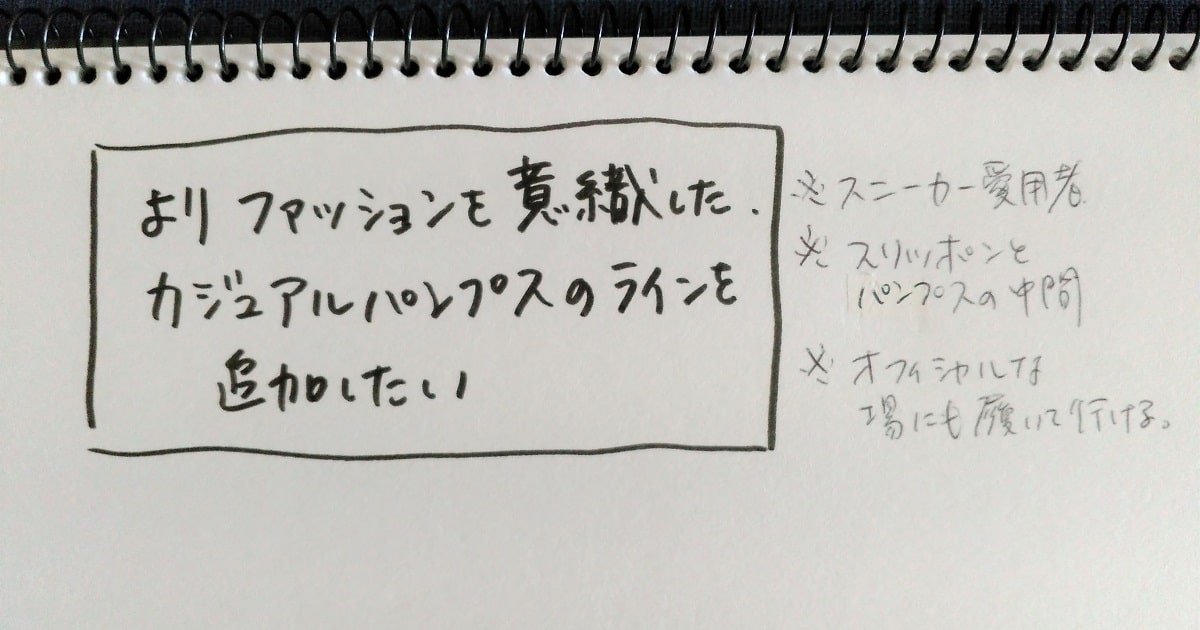 よりファッションを意織した.
カジュアルパンプスのラインを
追加したい
※スニーカー愛用者
※スリッポンと
パンプスの中間
※オフィシャルな
場にも履いて行ける。